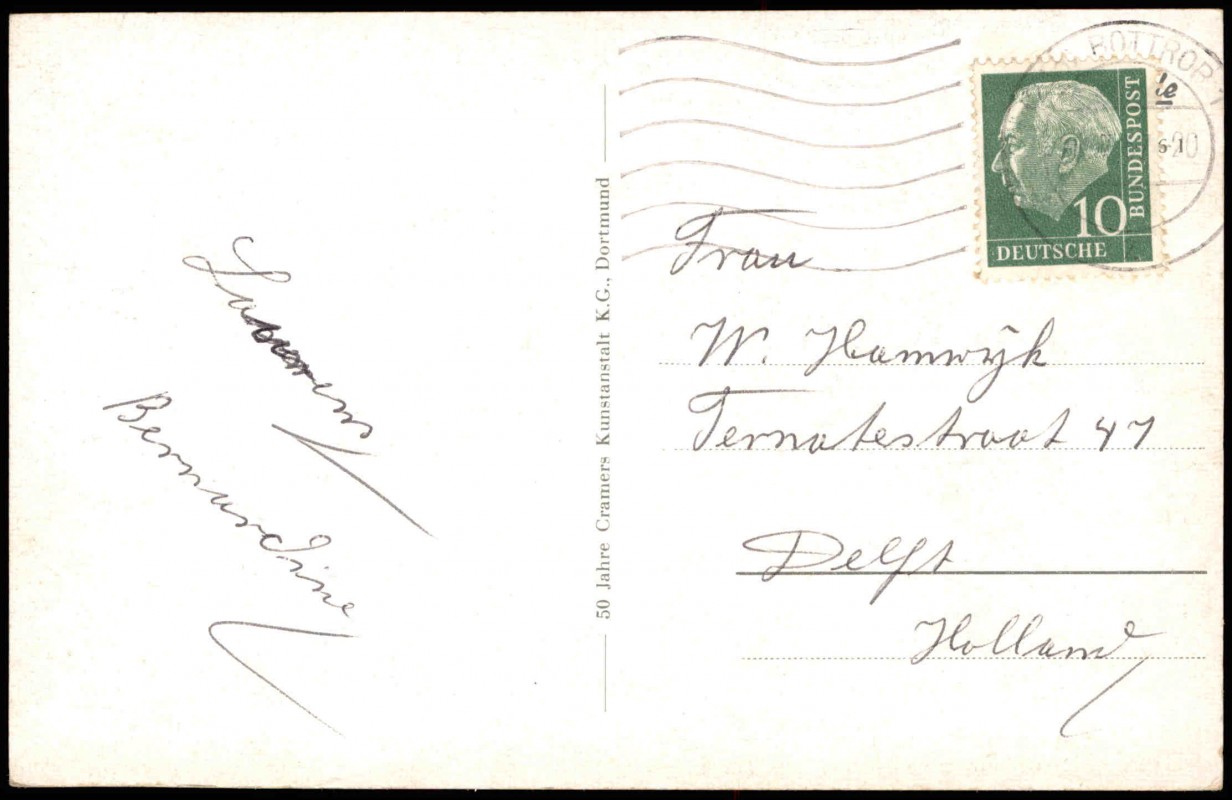 BOTTROP 1
le
61
-20
BUNDESPOST
10
DEUTSCHE
Frau
W. Hamwijk
Ternatestraat 47
Delft
Holland
50 Jahre Cramers Kunstanstalt K.G., Dortmund
Bernardine